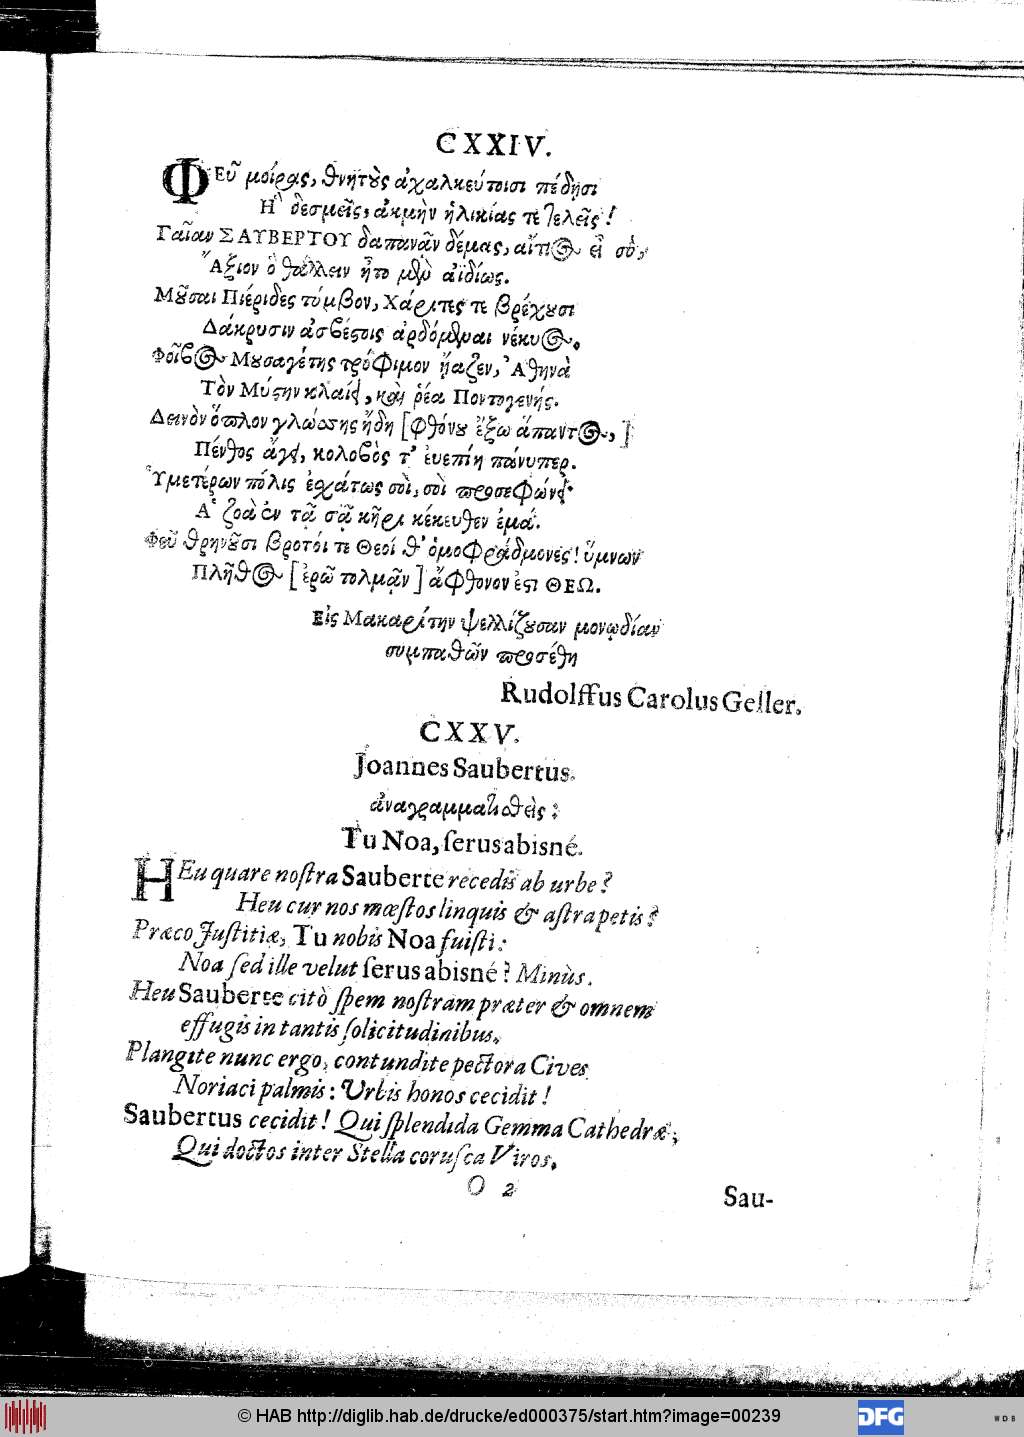 CXXIV.
ΦΕῦ μοίρας, θνητοὺς ἀχαλκεύτοισι πέδησι
Ἢ δεσμεῖς, ἀκμὴν ἡλικίας τε τελεῖς!
Γαῖαν ΣΑΥΒΕΡΤΟΥ δαπανᾶν δέμας, αἴτι⊙ εἶ σύ,
Ἄξιον ὃ θάλλειν ἦτο μὲν ἀϊδίως.
Μοῦσαι Πιέριδες τύμβον, Χάριτές τε βρέχουσι
Δάκρυσιν ἀσβέστοις ἀρδόμεναι νέκυος.
Φοῖβος Μουσαγέτης τρόφιμον ἤαζεν, Ἀθηνᾶ
Τὸν Μύστην κλαίει, καὶ ῥέα Ποντογενής.
Δεινὸν ὅπλον γλώσσης ἤδη [φθόνου ἔξω ἅπαντος,]
Πένθος ἄγει, κολοβὸς τ' ἐυεπίη πάνυπερ.
Ὑμετέρων πόλις ἐσχάτως σοὶ, σοὶ προσεφώνει·
Α ζοὰ ἐν τᾷ σᾷ κῆρι κέκευθεν ἐμά.
Φεῦ θρηνοῦσι βροτοί τε Θεοί θ' ὁμοφράδμονες! ὕμνων
Πλῆθος [ἐρῶ τολμᾶν] ἄφθονον ἐστι ΘΕΩ.
Εἰς Μακαρίτην ψελλίζουσαν μονῳδίαν
συμπαθῶν προσέθη
Rudolffus Carolus Geller.
CXXV.
Joannes Saubertus.
ἀναγραμματισθεὶς:
Tu Noa, serus abisné.
HEu quare nostra Sauberte recedis ab urbe?
Heu cur nos mœstos linquis & astra petis?
Præco Justitiæ, Tu nobis Noa fuisti:
Noa sed ille velut serus abisné? Minùs.
Heu Sauberte citò spem nostram præter & omnem
effugis in tantis solicitudinibus.
Plangite nunc ergo, contundite pectora Cives
Noriaci palmis: Urbis honos cecidit!
Saubertus cecidit! Qui splendida Gemma Cathedræ,
Qui doctos inter Stella corusca Viros.
O 2
Sau-
© HAB http://diglib.hab.de/drucke/ed000375/start.htm?image=00239
DFG
WDB